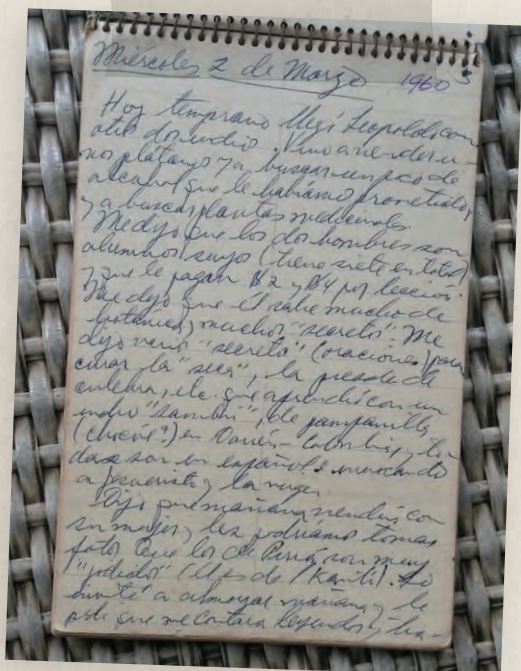 Miércoles 2 de Marzo 1960
Hoy temprano llegó Leopoldo con
otro dos indios. Vino a vender u-
nos plátanos y a buscar un poco de
alcanfor que le habíamos prometido,
y a buscar plantas medicinales.
Me dijo que los dos hombres son
alumnos suyos (tiene siete en total)
y que le pagan B/2 y B/4 por lección.
Me dijo que él sabe mucho de
botánica, muchos "secretos". Me
dijo varios "secretos" (oraciones) para
curar la "seca", la picada de
culebra, etc. que aprendió con un
indio
(chocóe?) en Darién - Colombia, y
son en español e invocando
a Jesucristo y la virgen.
Dijo que mañana vendrá con
su mujer y les podríamos tomar
fotos. Que los de son muy
"jodidos" (él es de ). Lo
invité a almorzar mañana y le
pedí que me contara leyendas y